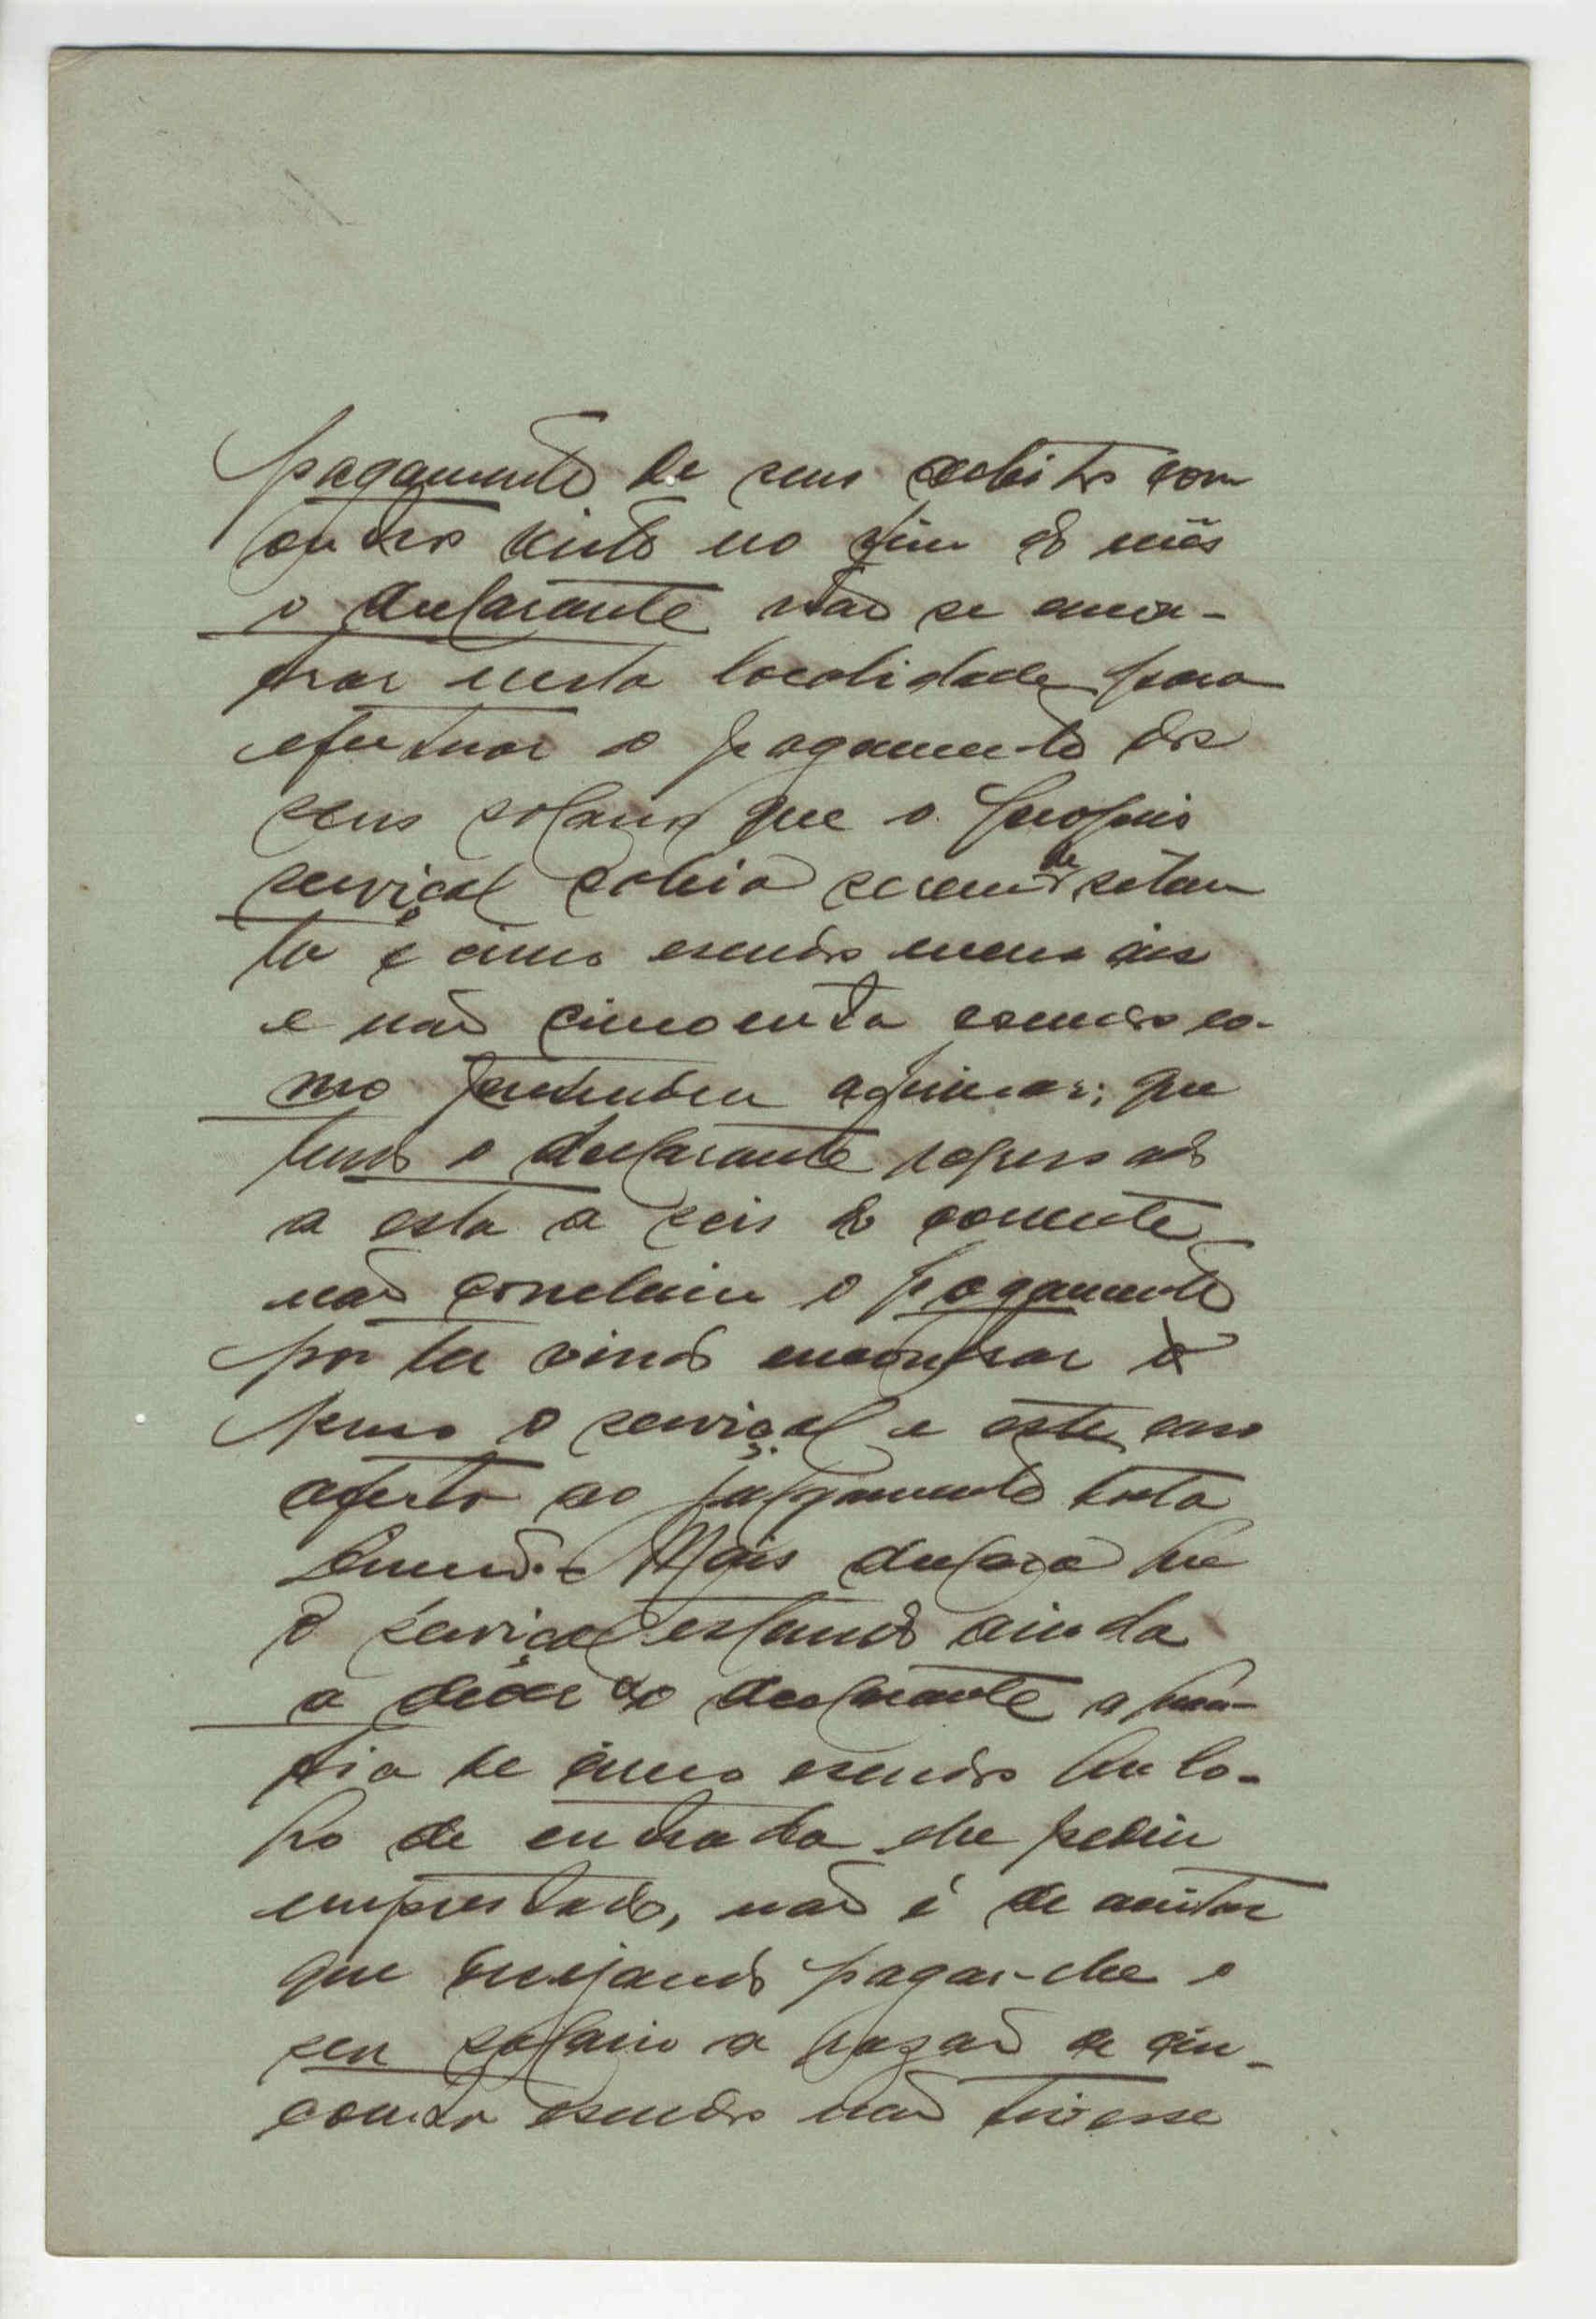 pagamento de seus debitos com
outros visto no fim do mês
o declarante não se encon-
trar nesta localidade para
efectuar o pagamento dos
seus salarios que o proprio
serviçal sabia serem de seten
ta e cinco escudos mensais
e não cincoenta escudos co-
mo pretendeu afirmar; que
tendo o declarante regressado
a esta a seis do corrente
não concluiu o pagamento
por ter vindo encontrar
preso o serviçal e este caso
afecto ao julgamento desta
Mais declara que
o serviçal estando ainda
a dever ao declarante a quan-
tia de cinco escudos que lo-
go de entrada lhe pediu
emprestado, não é de aceitar
que desejando pagar-lhe o
seu salario a razão de cin-
coenta escudos não tivesse